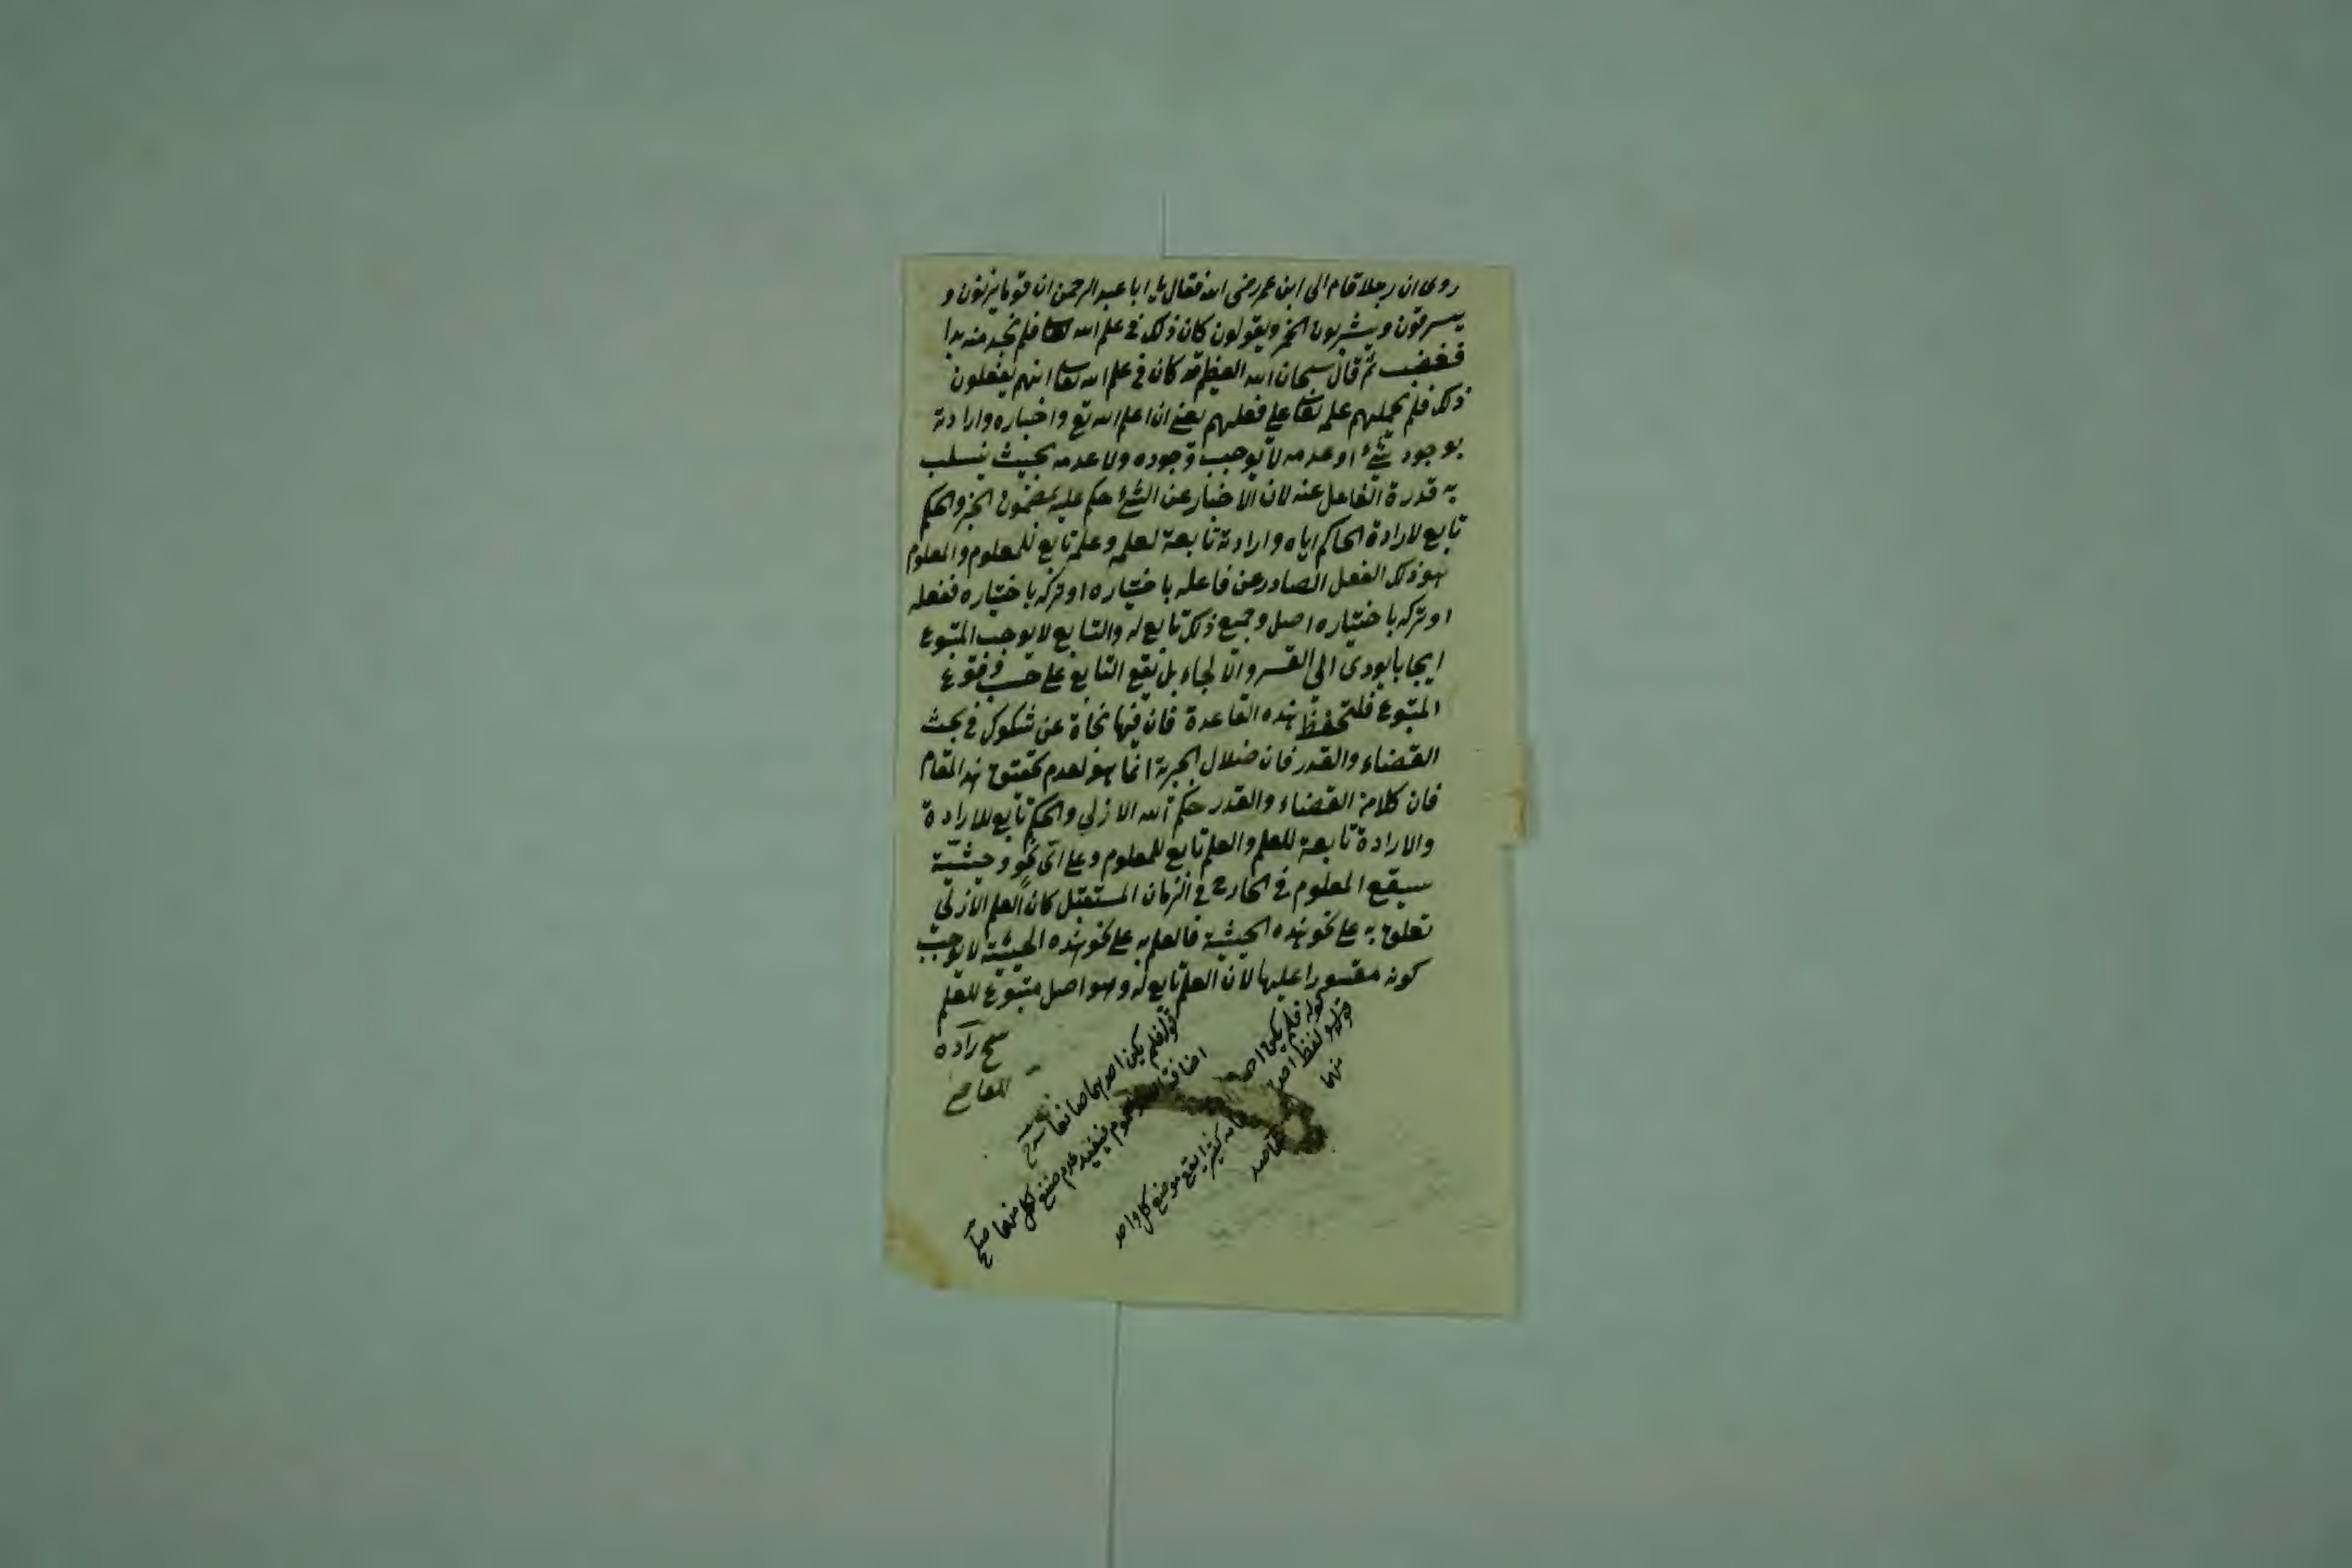 روى ان رجلا قام الى ابن عمر رضى الله فقال يا ابا عبد الرحمن ان قوما يزنون و
يسرقون ويشربون الخمر ويقولون كان ذلك فى علم الله تعا فلم نجد منه بدا
فغضب ثم قال سبحان الله العظيم قد كان فى علم الله تعا انهم يفعلون
ذلك فلم يحملهم علمه تعا على فعلهم يعنى ان اعلم الله تع واخباره وارادته
بوجود شئ او عدمه لا يوجب وجوده ولا عدمه بحيث ينسلب
به قدرة الفاعل عنه لان الاخبار عن الشئ حكم عليه بمضمون الخبر والحكم
تابع لارادة الحاكم اياه وارادته تابعة لعلمه وعلمه تابع للمعلوم والمعلوم
هو ذلك الفعل الصادر عن فاعله باختياره او تركه باختياره ففعله
او تركه باختياره اصل وجميع ذلك تابع له والتابع لا يوجب المتبوع
ايجابا يودى الى القسر والالجاء بل يقع التابع على حسب وقوع
المتبوع فلتحفظ هذه القاعدة فان فيها نجاة عن شكوك فى بحث
القضاء والقدر فان ضلال الجبرية انما هو لعدم هذا المقام
فان كلا من القضاء والقدر حكم الله الازلي والحكم تابع للارادة
والارادة تابعة للعلم والعلم تابع للمعلوم وعلى اى نحو وحيثية
سيقع المعلوم فى الخارج فى الزمان المستقبل كان العلم الازلي
تعلق به على نحو هذه الحيثية فالعلم به على نحو هذه الحيثية لا يوجب
كونه مقسورا عليها لان العلم تابع له وهو اصل متبوع للعلم
شيخ زاده
للقاضى
قوله فلم يكن احدهما صانعا
اضافة العموم فيفيد عدم صنع كل منهما
قوله فلم يكن احد
لفظ احد
كثيرا يقع موضع كل واحد
منهما